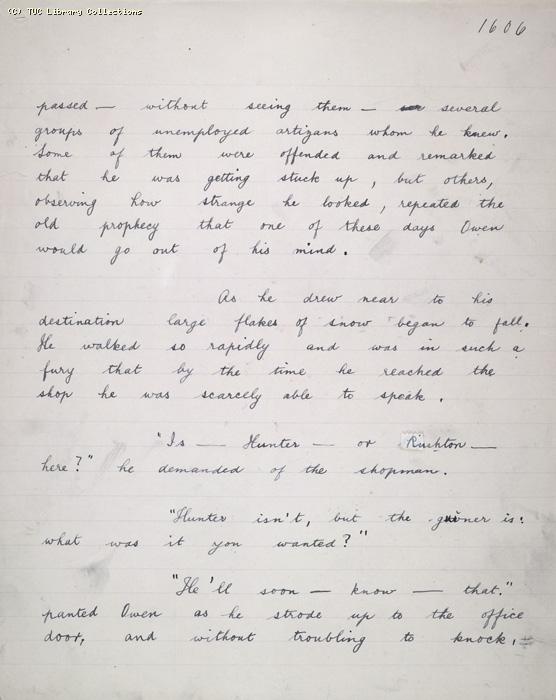 (C) TUC Library Collections
1606
passed — without seeing them — several
groups of unemployed artizans whom he knew.
Some of them were offended and remarked
that he was getting stuck up, but others,
observing how strange he looked, repeated the
old prophecy that one of these days Owen
would go out of his mind.
As he drew near to his
destination large flakes of snow began to fall.
He walked so rapidly and was in such a
fury that by the time he reached the
shop he was scarcely able to speak.
"Is — Hunter — or Rushton —
here?" he demanded of the shopman.
"Hunter isn't, but the guvner is:
what was it you wanted?"
"He'll soon — know — that."
panted Owen as he strode up to the office
door, and without troubling to knock,